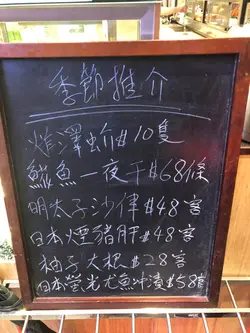 季節推介
炸澤蚧$10隻
鯎魚一夜干$68條
明太子沙律$48客
日本煙豬肝$48客
柚子大根$28客
日本螢光尤魚沖漬$58客